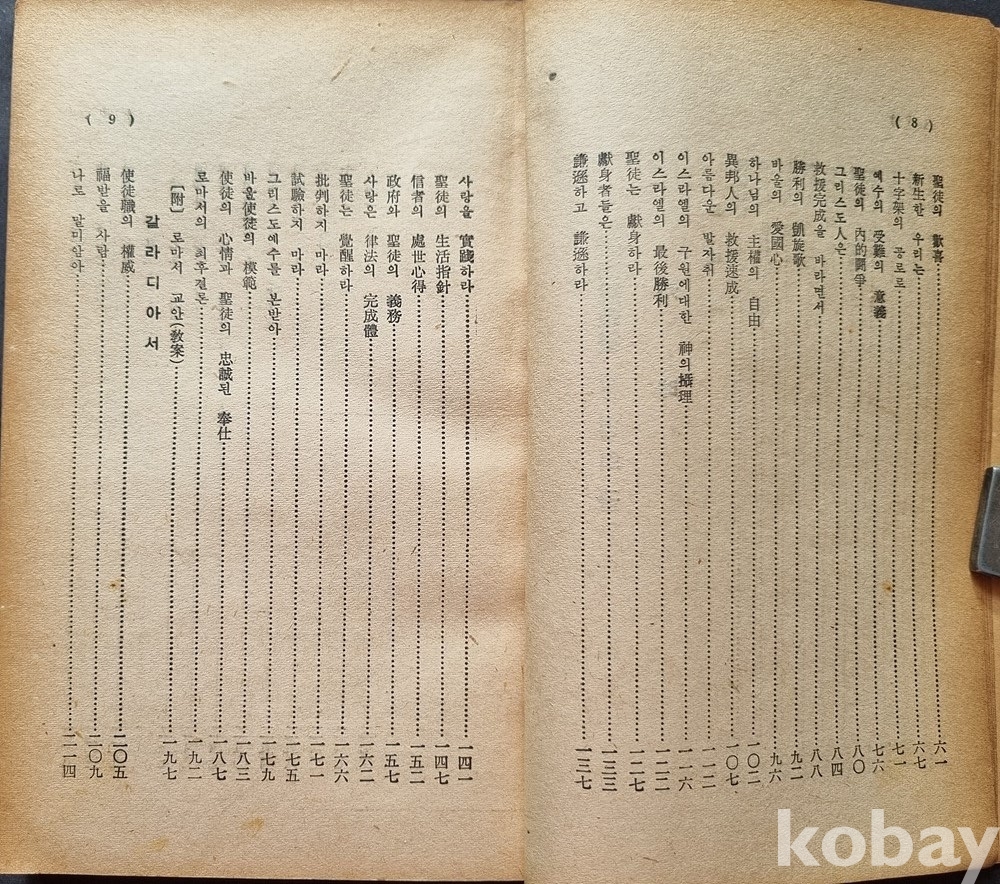 ( 8 )
聖徒의 歡喜 六一
新生한 우리는 六七
十字架의 공로로 七一
예수의 受難의 意義 七六
聖徒의 內的鬪爭 八〇
그리스도人은 八四
救援完成을 바라면서 八八
勝利의 凱旋歌 九二
바울의 愛國心 九六
하나님의 主權의 自由 一〇二
異邦人의 救援速成 一〇七
아름다운 발자취 一一二
이스라엘의 구원에대한 神의攝理 一一六
이스라엘의 最後勝利 一二二
聖徒는 獻身하라 一二七
獻身者들은 一三三
謙遜하고 謙遜하라 一三七
( 9 )
사랑을 實踐하라 一四一
聖徒의 生活指針 一四七
信者의 處世心得 一五二
政府와 聖徒의 義務 一五七
사랑은 律法의 完成體 一六二
聖徒는 覺醒하라 一六六
批判하지 마라 一七一
試驗하지 마라 一七五
그리스도예수를 본받아 一七九
바울使徒의 模範 一八三
使徒의 心情과 聖徒의 忠誠된 奉仕 一八七
로마서의 최후결론 一九二
〔附〕 로마서 교안(敎案) 一九七
갈라디아서
使徒職의 權威 二〇五
福받을 사람 二〇九
나로 말미암아 二一四
kobay